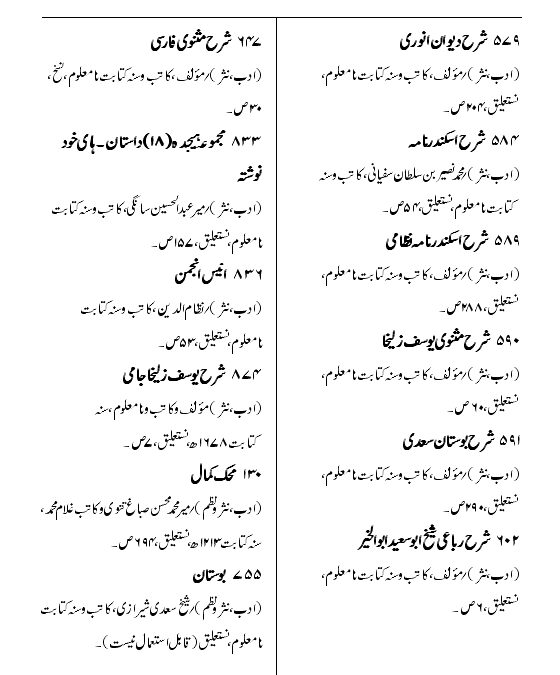 ۵۷۹ شرح دیوان انوری
(ادب، نثر)/مؤلف، کاتب وسنہ کتابت نامعلوم،
نستعلیق، ۲۰۴ص۔
۵۸۴ شرح اسکندرنامہ
(ادب، نثر)/محمد نصیر بن سلطان سفیانی، کاتب وسنہ
کتابت نامعلوم، نستعلیق، ۵۴ص۔
۵۸۹ شرح اسکندرنامہ نظامی
(ادب، نثر)/مؤلف، کاتب وسنہ کتابت نامعلوم،
نستعلیق، ۲۸۸ص۔
۵۹۰ شرح مثنوی یوسف زلیخا
(ادب، نثر)/مؤلف، کاتب وسنہ کتابت نامعلوم،
نستعلیق، ۶۰ص۔
۵۹۱ شرح بوستان سعدی
(ادب، نثر)/مؤلف، کاتب وسنہ کتابت نامعلوم،
نستعلیق، ۲۹۰ص۔
۶۰۲ شرح رباعی شیخ ابوسعید ابوالخیر
(ادب، نثر)/مؤلف، کاتب وسنہ کتابت نامعلوم،
نستعلیق، ۶ص۔
۶۴۷ شرح مثنوی فارسی
(ادب، نثر)/مؤلف، کاتب وسنہ کتابت نامعلوم، نسخ،
۳۰ص۔
۸۳۳ مجموعہ ہیجدہ (۱۸) داستان۔ہای خود
نوشتہ
(ادب، نثر)/میر عبدالحسین سانگی، کاتب وسنہ کتابت
نامعلوم، نستعلیق، ۱۵۷ص۔
۸۳۶ انیس انجمن
(ادب، نثر)/نظام الدین، کاتب وسنہ کتابت
نامعلوم، نستعلیق، ۵۲ص۔
۸۷۴ شرح یوسف زلیخا جامی
(ادب، نثر)مؤلف وکاتب ونامعلوم، سنہ
کتابت ۱۶۷۸ھ، نستعلیق، ۷ص۔
۱۳۰ محک کمال
(ادب، نثر ونظم)/میر محمد محسن صباغ تتوی وکاتب غلام محمد،
سنہ کتابت ۱۲۱۳ھ، نستعلیق، ۶۹۴ص۔
۷۵۵ بوستان
(ادب، نثر ونظم)/شیخ سعدی شیرازی، کاتب وسنہ کتابت
نامعلوم، نستعلیق (قابل استعمال نیست)۔